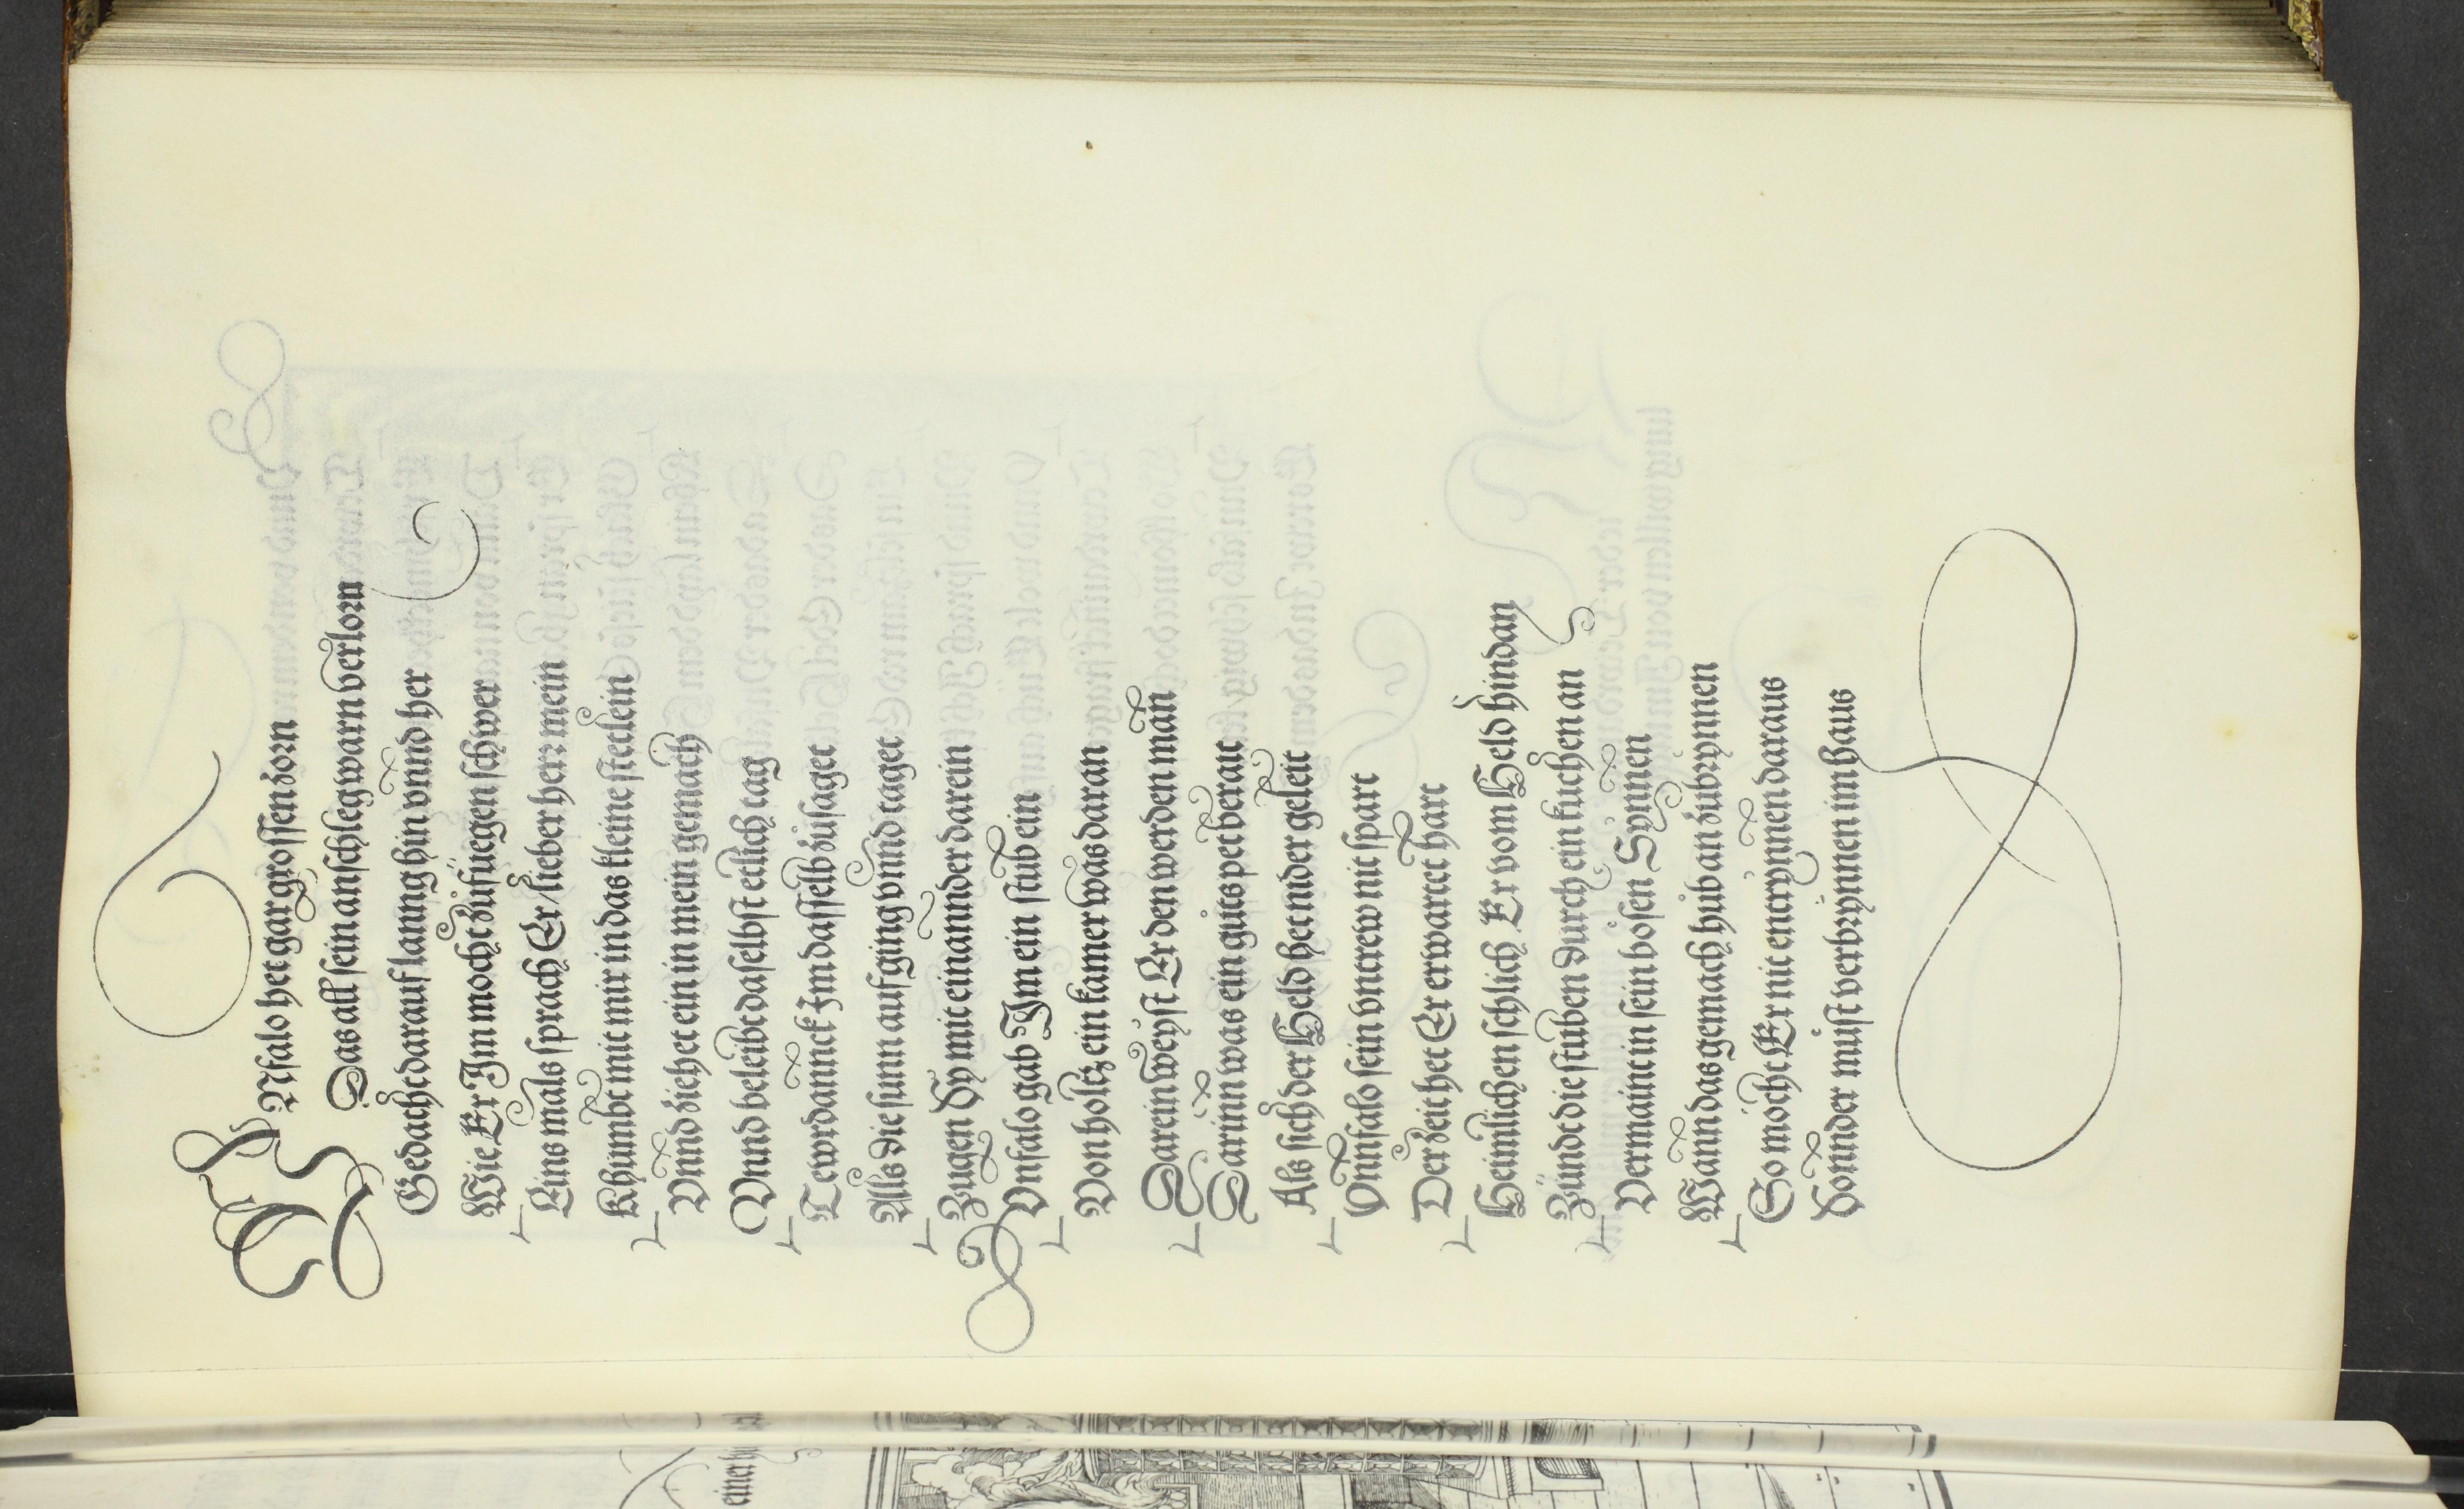 VNfalo het gar grossen zorn
Das all sein anschleg warn verlorn
Gedacht darauf lanng hin vnnd her
Wie Er Im mocht zůfüegen schwer
Eins mals sprach Er / lieber herr mein
Khumbt mit mir in das kleine stetlein
Vnnd ziehet ein in mein gemach
Vnnd beleibt daselbst etlich tag
Tewrdannck Im dasselb zůsaget
Als die sunn aufging vnnd taget
Zugen Sy mit einannder darein
Vnfalo gab Im ein stub ein
Von holtz ein kamer was daran
Darein weyst Er den werden man
Darinn was ein gůts pet berait
Als sich der Held het nider geleit
Vnnfalo sein vntrew nit spart
Der zeit het Er erwartet hart
Heimlichen schlich Er vom Held hindan
Zündt die stuben durch ein kuchen an
Vermaint in sein bosen Synnen
Wann das gemach hůb an zubrynnen
So mocht Er nit entrynnen daraus
Sonnder můst verbrynnen im haus
einer